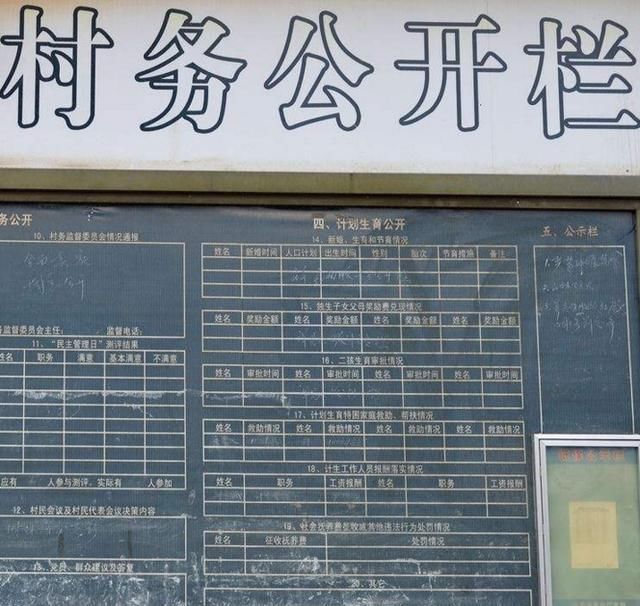 村务公开栏
务公开
10、村务监督委员会情况通报
务监督委员会主任： 监督电话：
11、“民主管理日”测评结果
姓名 职务 满意 基本满意 不满意
应有 人参与测评，实际有 人参加
12、村民会议及村民代表会议决策内容
13、党员、群众建议及答复
四、计划生育公开
14、新婚、生育和节育情况
姓名 新婚时间 人口计划 出生时间 性别 胎次 节育措施 备注
15、独生子女父母奖励费兑现情况
姓名 奖励金额 姓名 奖励金额 姓名 奖励金额 姓名 奖励金额
16、二孩生育审批情况
姓名 审批时间 姓名 审批时间 姓名 审批时间 姓名 审批时间
17、计划生育特困家庭救助、帮扶情况
姓名 救助情况 姓名 救助情况 姓名 救助情况 姓名 救助情况
18、计生工作人员报酬落实情况
姓名 职务 工资报酬 姓名 职务 工资报酬
19、社会抚养费征收或其他违法行为处罚情况
姓名 征收抚养费 处罚情况
20、其它
五、公示栏